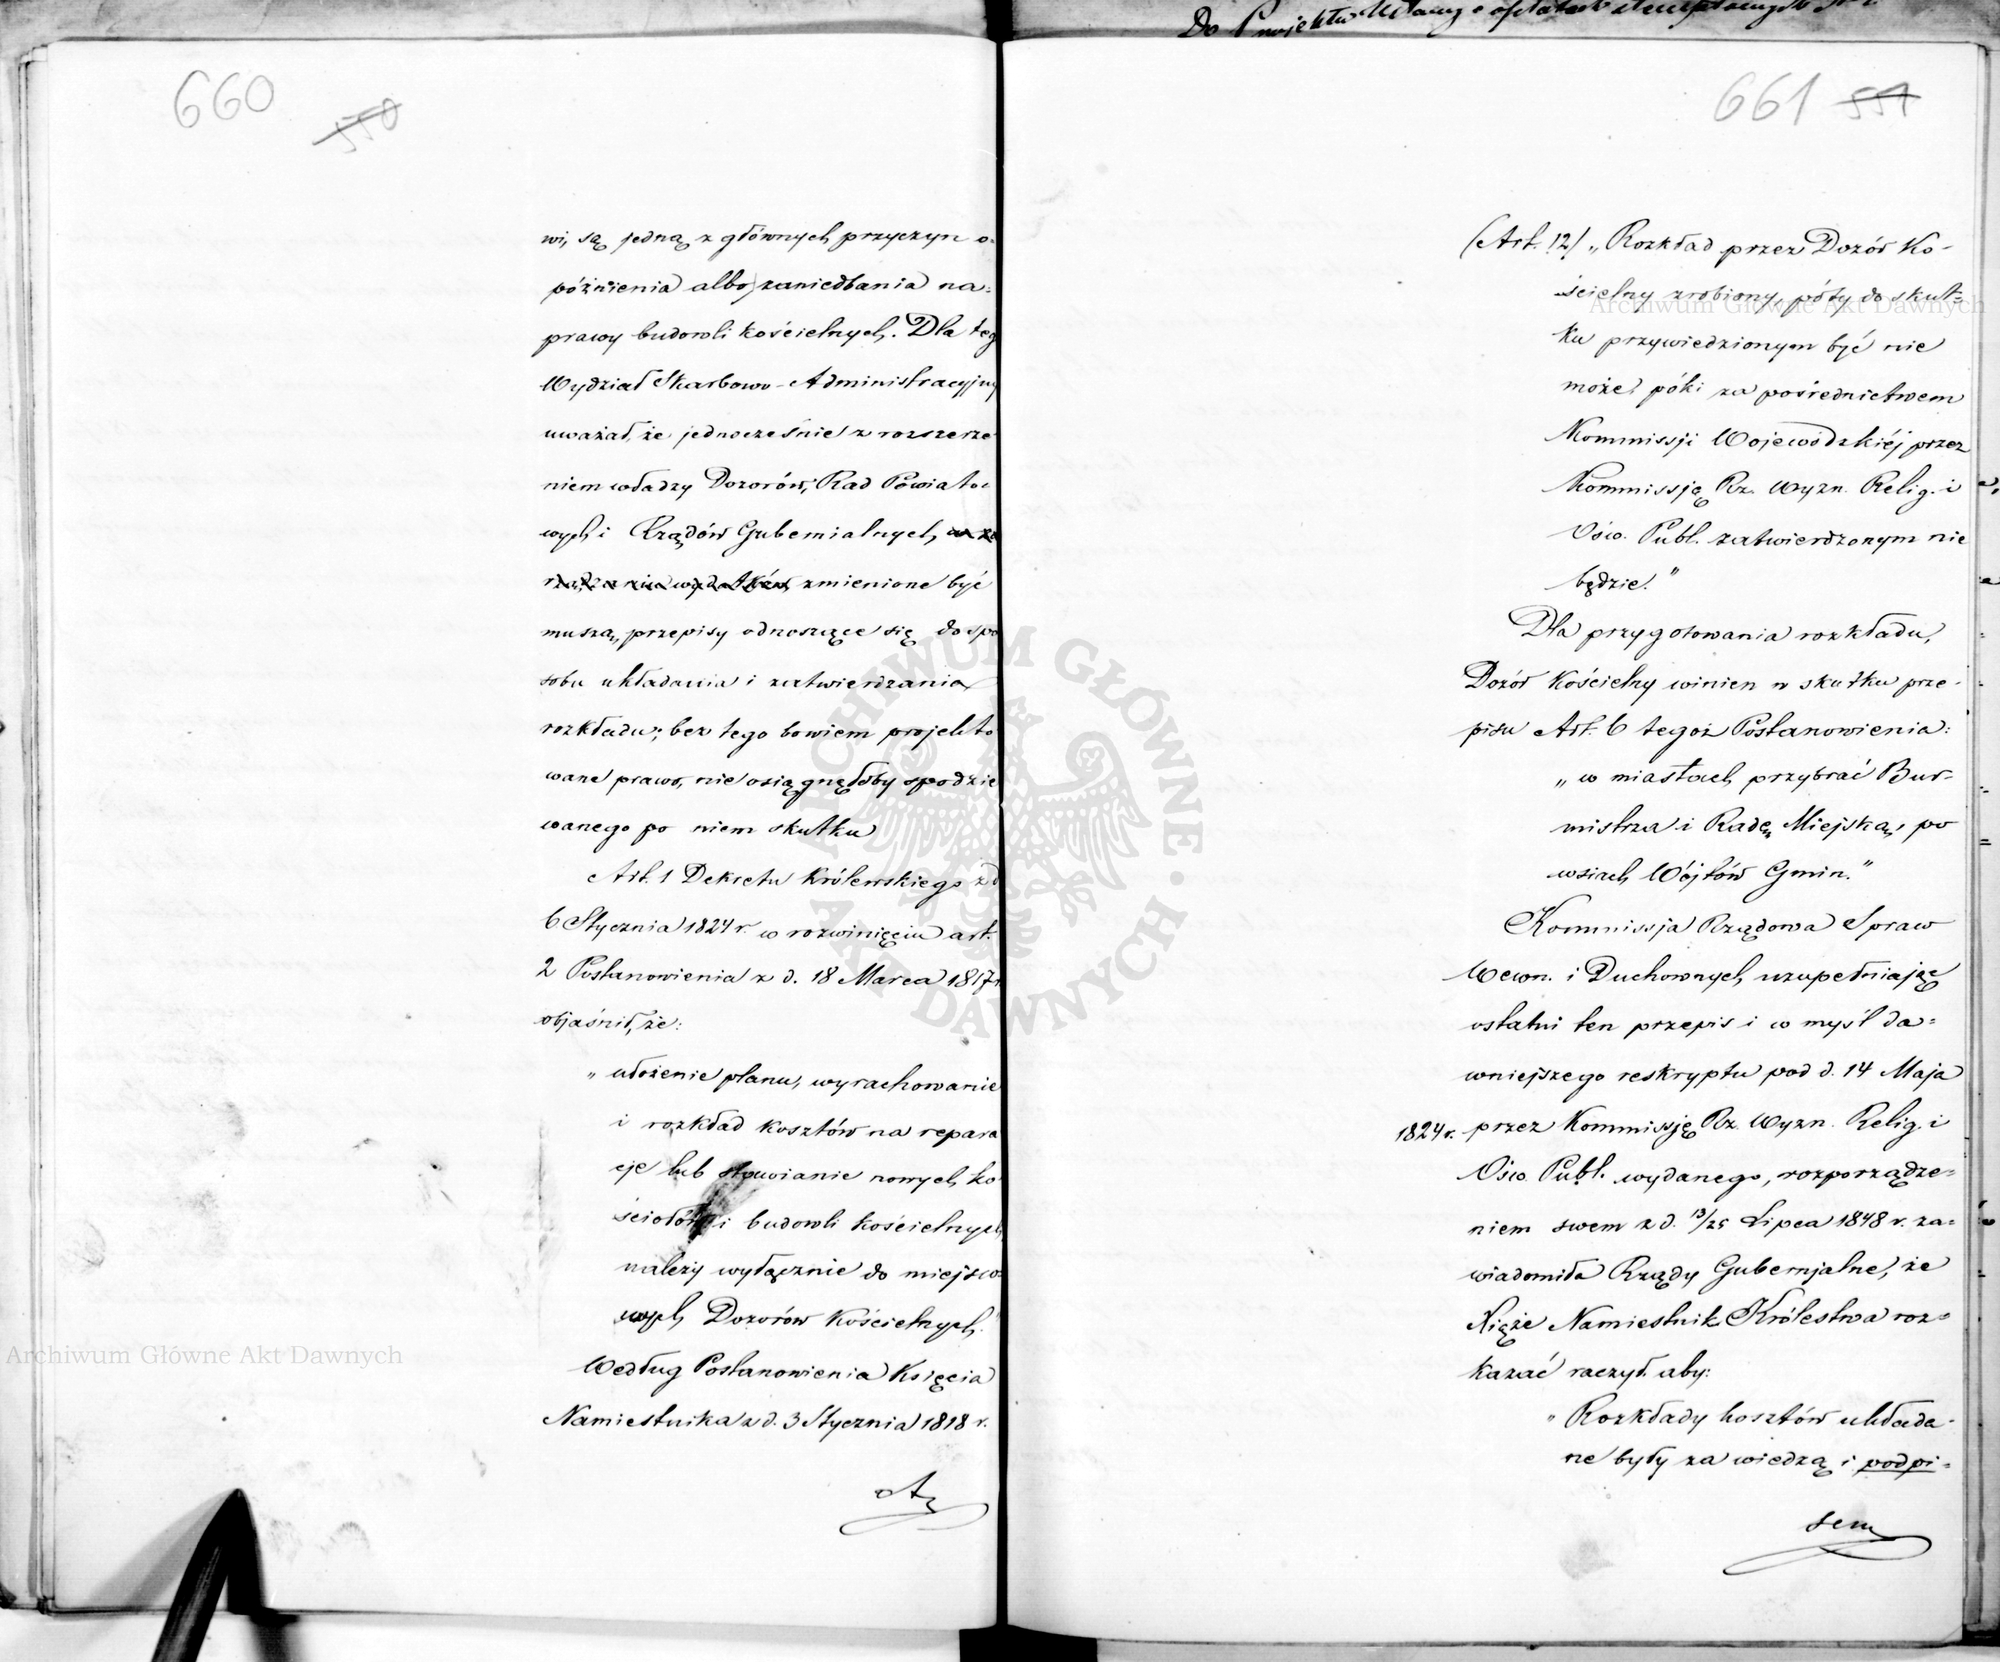 660
550
wi, są jedną z głównych przyczyn o-
późnienia albo zaniedbania na-
prawy budowli kościelnych. Dla teg
Wydział Skarbowo-Administracyjny
uważał, że jednocześnie z rozszerze
niem władzy Dozorów, Rad Powiato-
wych i Rządów Gubernialnych,
zmienione być
muszą, przepisy odnoszące się do spo
sobu układania i zatwierdzania
rozkładu; bez tego bowiem projekto
wane prawo, nie osiągnęłoby spodzie
wanego po niem skutku
Art. 1 Dekretu Królewskiego z d
6 Stycznia 1824 r. w rozwinięciu art.
2 Postanowienia z d. 18 Marca 1817 r.
objaśnił, że:
„ułożenie planu, wyrachowanie
i rozkład kosztów na repara
cje lub stawianie nowych ko
ściołów i budowli kościelnych,
należy wyłącznie do miejsco-
wych Dozorów Kościelnych."
Według Postanowienia Księcia
Namiestnika z d. 3 Stycznia 1818 r.
Do Projektu Ustawy o opłatach stemplowych
661
551
(Art. 12) „Rozkład przez Dozór Ko-
ścielny zrobiony, póty do skut-
ku przywiedzionym być nie
może, póki za pośrednictwem
Kommissji Wojewódzkiéj przez
Kommissję Rz. Wyzn. Relig. i
Ośw. Publ. zatwierdzonym nie
będzie."
Dla przygotowania rozkładu,
Dozór Kościelny winien w skutku prze-
pisu Art. 6 tegoż Postanowienia:
„w miastach przybrać Bur-
mistrza i Radę Miejską, po
wsiach Wójtów Gmin."
Kommissja Rządowa Spraw
Wewn. i Duchownych, uzupełniając
ostatni ten przepis i w myśl da-
wniejszego reskryptu pod d. 14 Maja
1824 r. przez Kommissję Rz. Wyzn. Relig. i
Ośw. Publ. wydanego, rozporządze-
niem swem z d. 13/25 Lipca 1848 r. za-
wiadomiła Rządy Gubernjalne, że
Xiąże Namiestnik Królestwa roz-
kazać raczył aby:
„Rozkłady kosztów układa-
ne były za wiedzą i podpi-
sem
Archiwum Główne Akt Dawnych
Archiwum Główne Akt Dawnych
ARCHIWUM GŁÓWNE · AKT DAWNYCH ·